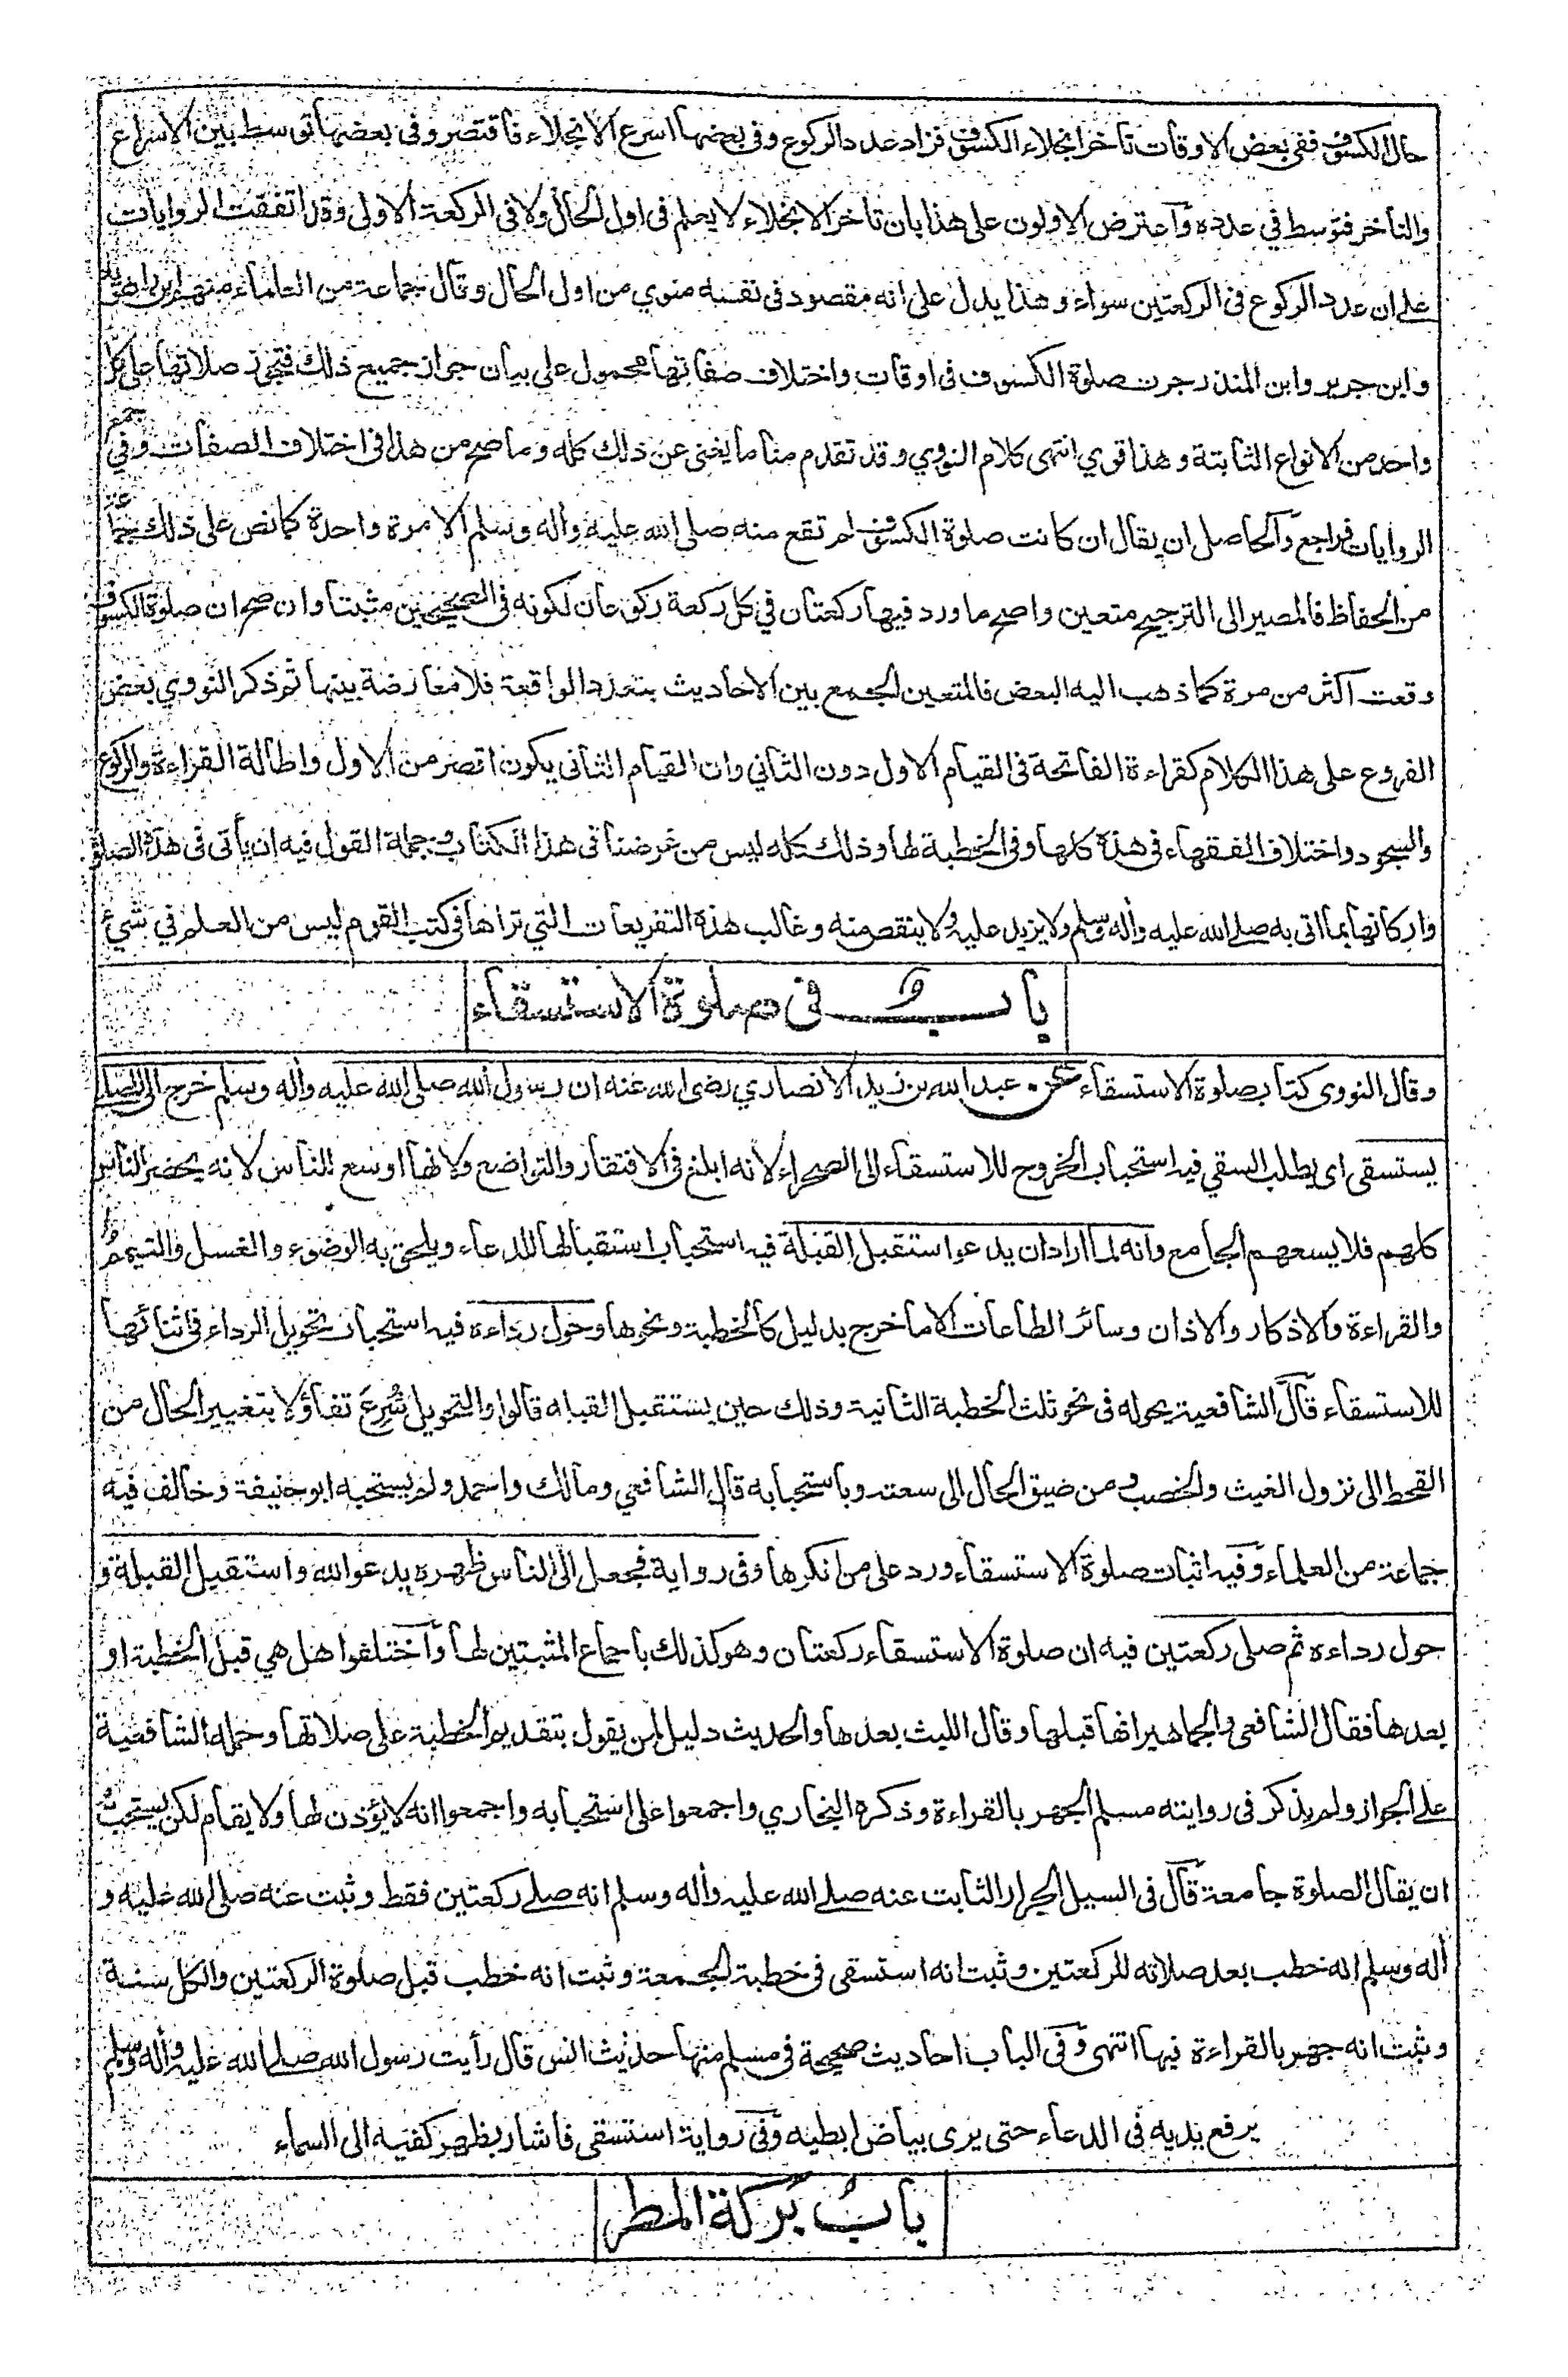 حال الكسوف ففى بعض الاوقات تأخر انجلاء الكسوف فزاد عدد الركوع وفى بعضها اسرع الانجلاء فاقتصر وفى بعضها توسط بين الاسراع
والتأخر فتوسط في عدده وآعترض الاولون على هذا بان تأخر الانجلاء لا يعلم فى اول الحال ولا فى الركعة الاولى وقد اتفقت الروايات
على ان عدد الركوع فى الركعتين سواء وهذا يدل على انه مقصود فى نفسه منوي من اول الحال وقال جماعة من العلماء منهم ابن راهويه
وابن جرير وابن المنذر جرت صلوة الكسوف فى اوقات واختلاف صفاتها محمول على بيان جواز جميع ذلك فتجوز صلاتها على كل
واحد من الانواع الثابتة وهذا قوي انتهى كلام النووي وقد تقدم منا ما يغنى عن ذلك كله وما صح من هذا فى اختلاف الصفات وفي جمع
الروايات فراجع وآلحاصل ان يقال ان كانت صلوة الكسوف لم تقع منه صلى الله عليه وأله وسلم الا مرة واحدة كما نص على ذلك جماعة
من الحفاظ فالمصير الى الترجيح متعين واصح ما ورد فيها ركعتان في كل ركعة ركوعان لكونه فى الصحيحين مثبتا وان صح ان صلوة الكسوف
وقعت اكثر من مرة كما ذهب اليه البعض فالمتعين الجمع بين الاحاديث بتعدد الواقعة فلا معارضة بينها ثم ذكر النووي بعض
الفروع على هذا الكلام كقراءة الفاتحة فى القيام الاول دون الثاني وان القيام الثانى يكون اقصر من الاول واطالة القراءة والركوع
والسجود واختلاف الفقهاء فى هذه كلها وفى الخطبة لها وذلك كله ليس من غرضنا فى هذا الكتاب وجملة القول فيه ان يأتى فى هذه الصلوة
واركانها بما اتى به صلے الله عليه وأله وسلم ولا يزيد عليه ولا ينقص منه وغالب هذه التفريعات التي تراها فى كتب القوم ليس من العلم في شيء
باب فى صلوة الاستسقاء
وقال النووى كتاب صلوة الاستسقاء عن عبد الله بن زيد الانصاري رضى الله عنه ان رسول الله صلى الله عليه وأله وسلم خرج الى المصلى
يستسقى اى يطلب السقي فيه استحباب الخروج للاستسقاء الى الصحراء لانه ابلغ فى الافتقار والتواضع ولانها اوسع للناس لانه يحضر الناس
كلهم فلا يسعهم الجامع وانه لما اراد ان يدعو استقبل القبلة فيه استحباب استقبالها للدعاء ويلحق به الوضوء والغسل والتيمم
والقراءة والاذكار والاذان وسائر الطاعات الا ما خرج بدليل كالخطبة ونحوها وحول رداءه فيه استحباب تحويل الرداء فى اثنائها
للاستسقاء قآل الشافعية يحوله فى نحو ثلث الخطبة الثانية وذلك حين يستقبل القبله قالوا والتحويل شُرِعَ تفاؤلا بتغيير الحال من
القحط الى نزول الغيث والخصب و من ضيق الحال الى سعته وباستحبابه قال الشافعي ومالك واحمد ولم يستحبه ابو حنيفة وخالف فيه
جماعة من العلماء وفيه اثبات صلوة الاستسقاء ورد على من انكرها وفى رواية فجعل الى الناس ظهره يدعو الله واستقبل القبلة و
حول رداءه ثم صلى ركعتين فيه ان صلوة الاستسقاء ركعتان وهو كذلك باجماع المثبتين لها وآختلفوا هل هي قبل الخطبة او
بعدها فقال الشافعى والجماهير انها قبلها وقال الليث بعدها والحديث دليل لمن يقول بتقديم الخطبة على صلاتها وحمله الشافعية
على الجواز ولم يذكر فى روايته مسلم الجهر بالقراءة وذكره البخاري واجمعوا على استحبابه واجمعوا انه لا يؤذن لها ولا يقام لكن يستحب
ان يقال الصلوة جامعة قآل فى السيل الجرار الثابت عنه صلے الله عليه وأله وسلم انه صلے ركعتين فقط وثبت عنه صلى الله عليه و
أله وسلم انه خطب بعد صلاته للركعتين وثبت انه استسقى فى خطبة الجمعة وثبت انه خطب قبل صلوة الركعتين والكل سنة
وثبت انه جهر بالقراءة فيها انتهى وفى الباب احاديث صحيحة فى مسلم منها حديث انس قال رأيت رسول الله صلے الله عليه وأله وسلم
يرفع يديه فى الدعاء حتى يرى بياض ابطيه وفى رواية استسقى فاشار بظهر كفيه الى السماء
باب بركة المطر